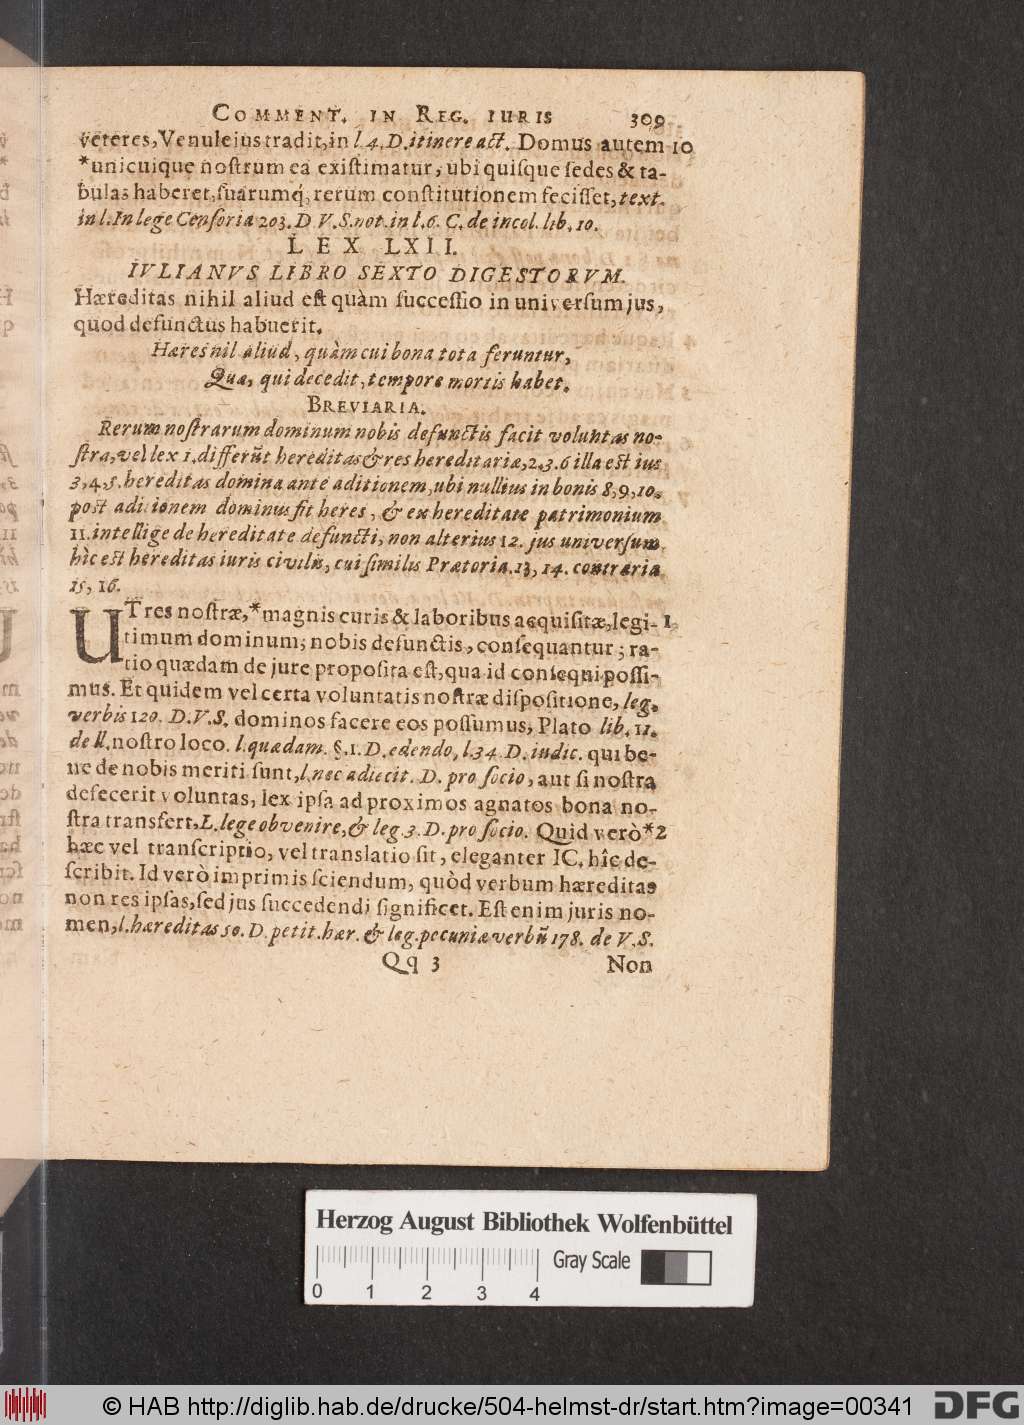 COMMENT. IN REG. IURIS 309
veteres, Venuleius tradit, in l. 4. D. itinere act. Domus autem 10
*unicuique nostrum ea existimatur, ubi quisque sedes & ta-
bulas haberet, suarumq́; rerum constitutionem fecisset, text.
in l. In lege Censoria 203. D V.S. not. in l. 6. C. de incol. lib. 10.
LEX LXII.
IVLIANVS LIBRO SEXTO DIGESTORVM.
Hæreditas nihil aliud est quàm successio in universum jus,
quod defunctus habuerit.
Hæres nil aliud, quàm cui bona tota feruntur,
Quæ, qui decedit, tempore mortis habet.
BREVIARIA.
Rerum nostrarum dominum nobis defunctis facit voluntas no-
stra, vel lex 1. differũt hereditas & res hereditariæ, 2. 3. 6 illa est ius
3, 4, 5. hereditas domina ante aditionem, ubi nullius in bonis 8, 9, 10.
post aditionem dominus fit heres, & ex hereditate patrimonium
11. intellige de hereditate defuncti, non alterius 12. jus universum
hìc est hereditas iuris civilis, cui similis Prætoria. 13, 14. contraria
15, 16.
UT res nostræ, *magnis curis & laboribus acquisitæ, legi- 1
timum dominum, nobis defunctis, consequantur; ra-
tio quædam de jure proposita est, qua id consequi possi-
mus. Et quidem vel certa voluntatis nostræ dispositione, leg.
verbis 120. D. V.S. dominos facere eos possumus, Plato lib. 11.
de ll. nostro loco. l. quædam. §. 1. D. edendo, l. 34. D. iudic. qui be-
ne de nobis meriti sunt, l. nec adiecit. D. pro socio, aut si nostra
defecerit voluntas, lex ipsa ad proximos agnatos bona no-
stra transfert, L. lege obvenire, & leg. 3. D. pro socio. Quid verò *2
hæc vel transcriptio, vel translatio sit, eleganter IC. hîc de-
scribit. Id verò imprimis sciendum, quòd verbum hæreditas
non res ipsas, sed jus succedendi significet. Est enim juris no-
men, l. hæreditas 50. D. petit. hær. & leg. pecuniæ verbũ 178. de V.S.
Qq 3 Non
Herzog August Bibliothek Wolfenbüttel
Gray Scale
0 1 2 3 4
© HAB http://diglib.hab.de/drucke/504-helmst-dr/start.htm?image=00341
DFG